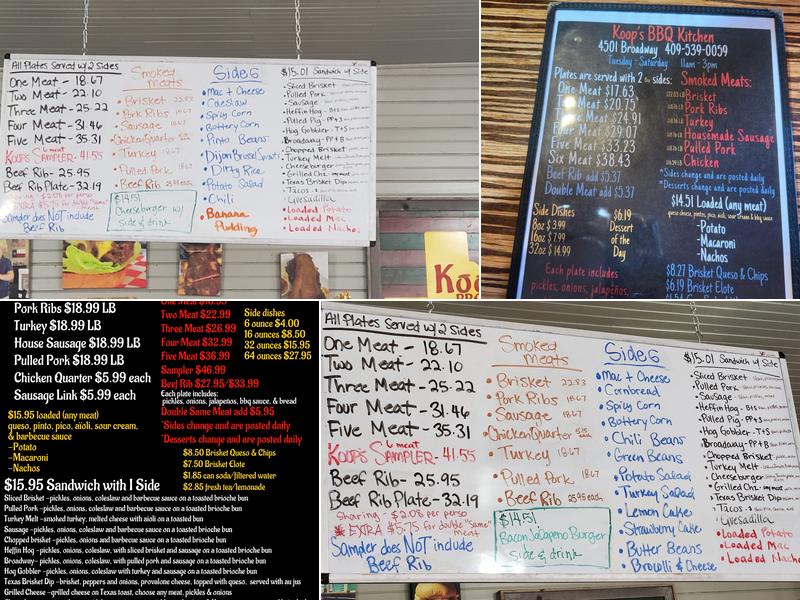 All Plates Served w/ 2 Sides
One Meat - 18.67
Two Meat - 22.10
Three Meat - 25.22
Four Meat - 31.46
Five Meat - 35.31
6 meat
KOOP'S SAMPLER - 41.55
Beef Rib - 25.95
Beef Rib Plate - 32.19
Sampler does NOT include
Beef Rib
Smoked
meats
• Brisket 22.83
• Pork Ribs 18.67
• Sausage 18.67
• Chicken Quarter
• Turkey 18.67
• Pulled Pork 18.67
• Beef Rib 25.95 each
$14.51
Cheeseburger w/
Side & drink
Sides
• Mac + Cheese
• Coleslaw
• Spicy Corn
• Battery Corn
• Pinto Beans
• Dijon Brussel Sprouts
• Dirty Rice
• Potato Salad
• Chili
• Banana
Pudding
$15.01 Sandwich w/ Side
- Sliced Brisket
- Pulled Pork
- Sausage
- Heffin Hog - B+S
- Pulled Pig - PP+S
- Hog Gobbler - T+S
- Broadway - PP+B
- Chopped Brisket
- Turkey Melt
- Cheeseburger
- Grilled Chz
- Texas Brisket Dip
- Quesadilla
• Loaded Potato
• Loaded Mac
• Loaded Nachos
Koop's BBQ Kitchen
4501 Broadway 409-539-0059
Tuesday - Saturday 11am - 3pm
Plates are served with 2 sides:
One Meat $17.63
Two Meat $20.75
Three Meat $24.91
Four Meat $29.07
Five Meat $33.23
Six Meat $38.43
Beef Rib add $5.37
Double Meat add $5.37
Smoked Meats:
Brisket
Pork Ribs
Turkey
Housemade Sausage
Pulled Pork
Chicken
*Sides change and are posted daily
*Desserts change and are posted daily
$14.51 Loaded (any meat)
queso cheese, pintos, pico, aioli, sour cream & bbq sauce
-Potato
-Macaroni
-Nachos
Side Dishes
8oz $3.99
16oz $7.99
32oz $14.99
$6.19
Dessert
of the
Day
Each plate includes
pickles, onions, jalapeños,
$8.27 Brisket Queso & Chips
$6.19 Brisket Elote
Pork Ribs $18.99 LB
Turkey $18.99 LB
House Sausage $18.99 LB
Pulled Pork $18.99 LB
Chicken Quarter $5.99 each
Sausage Link $5.99 each
$15.95 loaded (any meat)
queso, pinto, pico, aioli, sour cream,
& barbecue sauce
-Potato
-Macaroni
-Nachos
Two Meat $22.99
Three Meat $26.99
Four Meat $32.99
Five Meat $36.99
Sampler $46.99
Beef Rib $27.95/$33.99
Each plate includes:
pickles, onions, jalapeños, bbq sauce, & bread
Double Same Meat add $5.95
*Sides change and are posted daily
*Desserts change and are posted daily
Side dishes
6 ounce $4.00
16 ounces $8.50
32 ounces $15.95
64 ounces $27.95
$8.50 Brisket Queso & Chips
$7.50 Brisket Elote
$1.85 can soda/filtered water
$2.85 fresh tea/lemonade
$15.95 Sandwich with 1 Side
Sliced Brisket -pickles, onions, coleslaw and barbecue sauce on a toasted brioche bun
Pulled Pork -pickles, onions, coleslaw and barbecue sauce on a toasted brioche bun
Turkey Melt -smoked turkey, melted cheese with aioli on a toasted bun
Sausage -pickles, onions, coleslaw and barbecue sauce on a toasted brioche bun
Chopped brisket -pickles, onions and barbecue sauce on a toasted brioche bun
Heffin Hog -pickles, onions, coleslaw, with sliced brisket and sausage on a toasted brioche bun
Broadway- pickles, onions, coleslaw, with pulled pork and sausage on a toasted brioche bun
Hog Gobbler -pickles, onions, coleslaw with turkey and sausage on a toasted brioche bun
Texas Brisket Dip -brisket, peppers and onions, provalone cheese, topped with queso, served with au jus
Grilled Cheese -grilled cheese on Texas toast, choose any meat, pickles & onions
All Plates Served w/ 2 Sides
One Meat - 18.67
Two Meat - 22.10
Three Meat - 25.22
Four Meat - 31.46
Five Meat - 35.31
6 meat
KOOP'S SAMPLER - 41.55
Beef Rib - 25.95
Beef Rib Plate - 32.19
Sharing - $2.08 per person
* EXTRA $5.75 for double "Same" meat
Sampler does NOT include
Beef Rib
Smoked
meats
• Brisket 22.83
• Pork Ribs 18.67
• Sausage 18.67
• Chicken Quarter
• Turkey 18.67
• Pulled Pork 18.67
• Beef Rib 25.95 each
$14.51
Bacon Jalapeno Burger
Side & drink
Sides
• Mac + Cheese
• Cornbread
• Spicy Corn
• Battery Corn
• Chili Beans
• Green Beans
• Potato Salad
• Turkey Salad
• Lemon Cake
• Strawberry Cake
• Butter Beans
• Brocolli & Cheese
$15.01 Sandwich w/ Side
- Sliced Brisket
- Pulled Pork
- Sausage
- Heffin Hog - B+S
- Pulled Pig - PP+S
- Hog Gobbler - T+S
- Broadway - PP+B
- Chopped Brisket
- Turkey Melt
- Cheeseburger
- Grilled Chz
- Texas Brisket Dip
- Tacos - 3
- Quesadilla
• Loaded Potato
• Loaded Mac
• Loaded Nachos